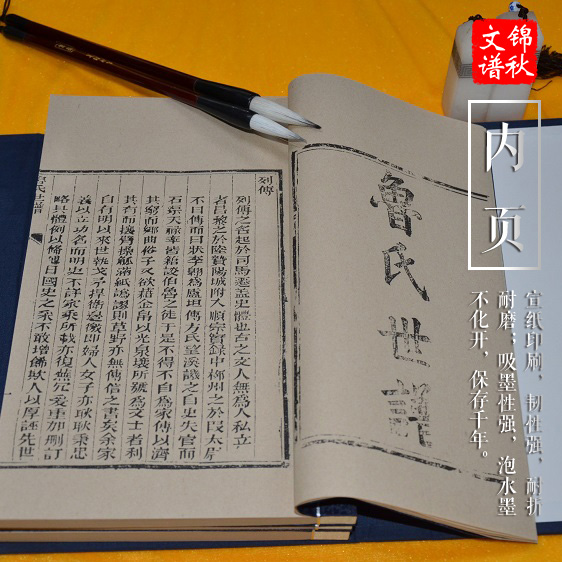 锦秋
文谱
内页
宣纸印刷，韧性强，耐折
耐磨；吸墨性强，泡水墨
不化开，保存千年。
魯氏世譜
列傳
列傳之名起於司馬遷蓋史體也古之文人無為人私立
者昌黎之於陸贄陽城附入順宗實錄中柳州之於段太尉
不曰傳而曰狀李翱為盧坦傳方氏溪譏之自史失官而
石天祿率皆伯魯之徒于是不得不自為家傳以濟
其窮而鄉曲俗子又欲藉金帛以光泉壤所號為文士者利
其有而攘臂操觚滿紙謬則草野亦無傳信之書矣余家
自有明以來世執戈捍邊徼即婦人女子亦耿耿秉忠
義以立功名而明史不詳家乘所載亦復無冗爰重加刪訂
略具體例以備他日國史之采不敢增飾欺人以原誣先世
氏世譜